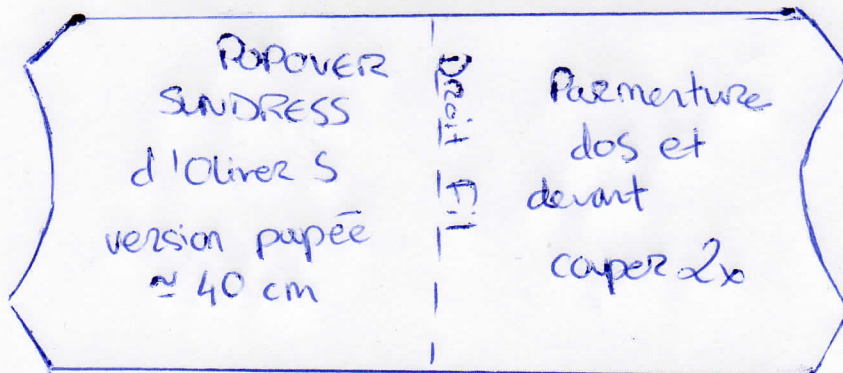 POPOVER
SUNDRESS
d'Oliver S
version pupée
≃ 40 cm
Droit fil
Parmenture
dos et
devant
couper 2x